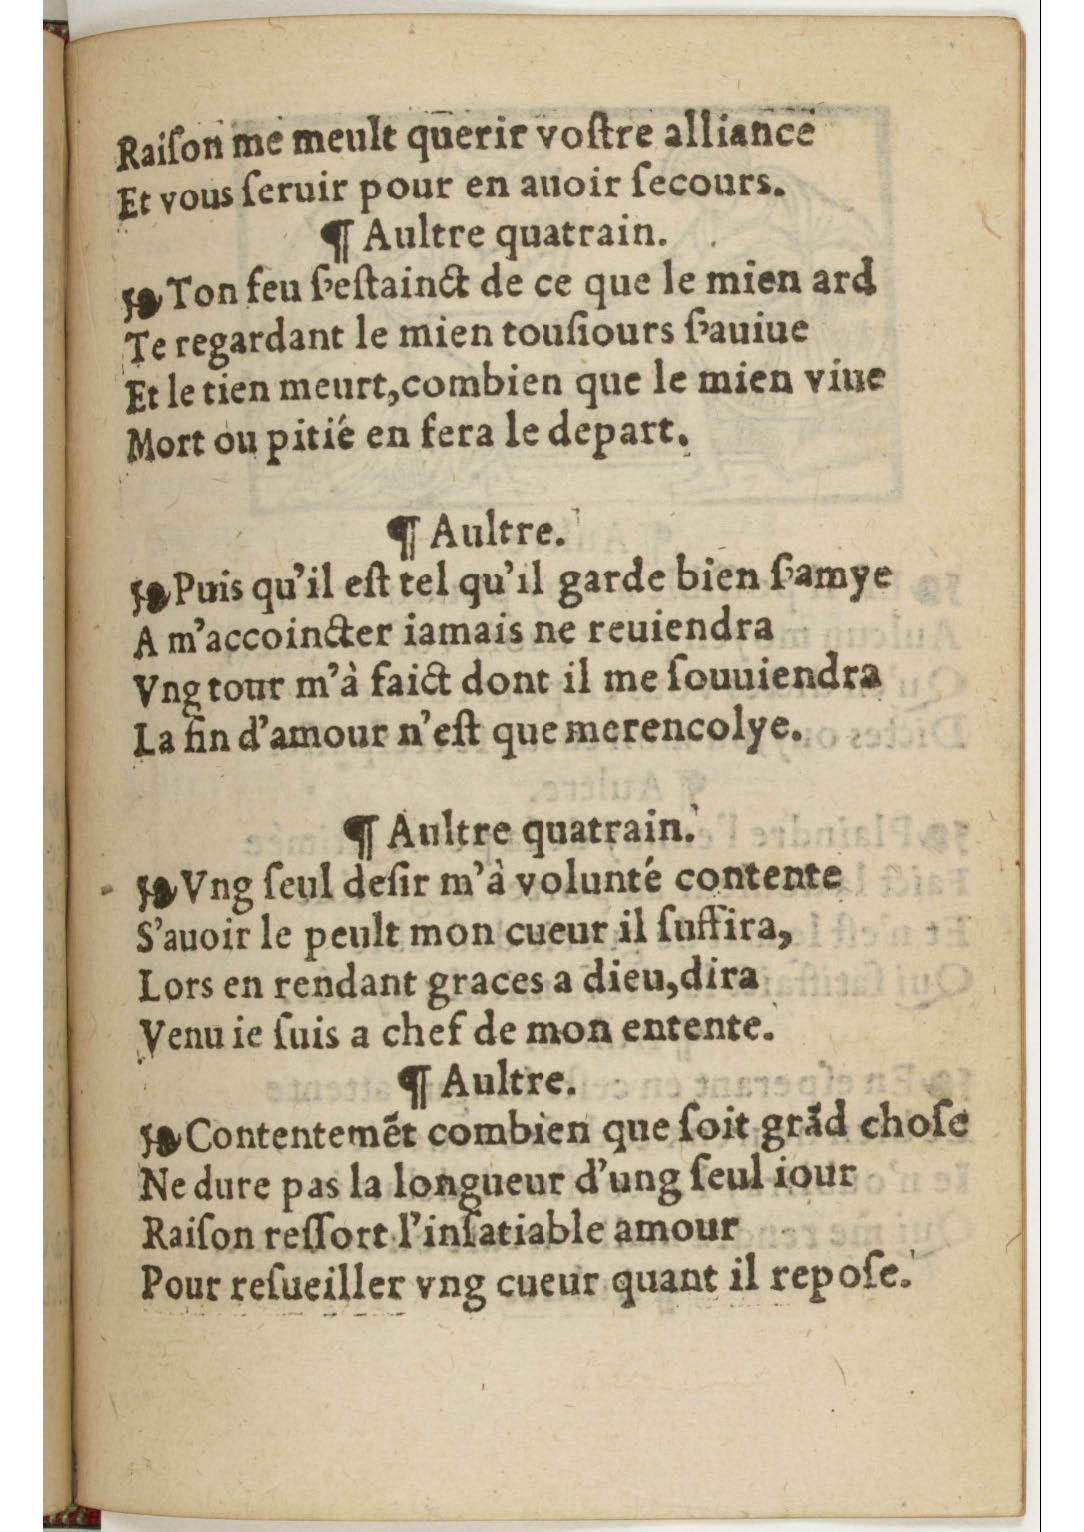 Raiſon me meult querir voſtre alliance
Et vous ſeruir pour en auoir ſecours.
¶ Aultre quatrain.
❧Ton feu ſ'eſtainct de ce que le mien ard
Te regardant le mien touſiours ſ'auiue
Et le tien meurt,combien que le mien viue
Mort ou pitié en fera le depart.
¶ Aultre.
❧Puis qu'il eſt tel qu'il garde bien ſ'amye
A m'accoincter iamais ne reuiendra
Vng tour m'à faict dont il me ſouuiendra
La fin d'amour n'eſt que merencolye.
¶ Aultre quatrain.
❧Vng ſeul deſir m'à volunté contente
S'auoir le peult mon cueur il ſuffira,
Lors en rendant graces a dieu,dira
Venu ie ſuis a chef de mon entente.
¶ Aultre.
❧Contentemēt combien que ſoit grād choſe
Ne dure pas la longueur d'ung ſeul iour
Raiſon reſſort l'inſatiable amour
Pour reſueiller vng cueur quant il repoſe.